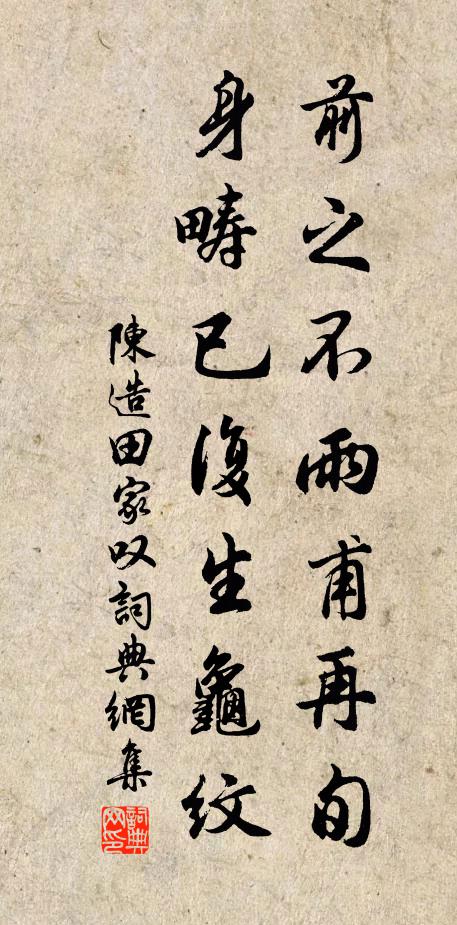 前之不雨甫再旬
身畴已復生龜紋
陳造田家叹詞典網集
詞典网印